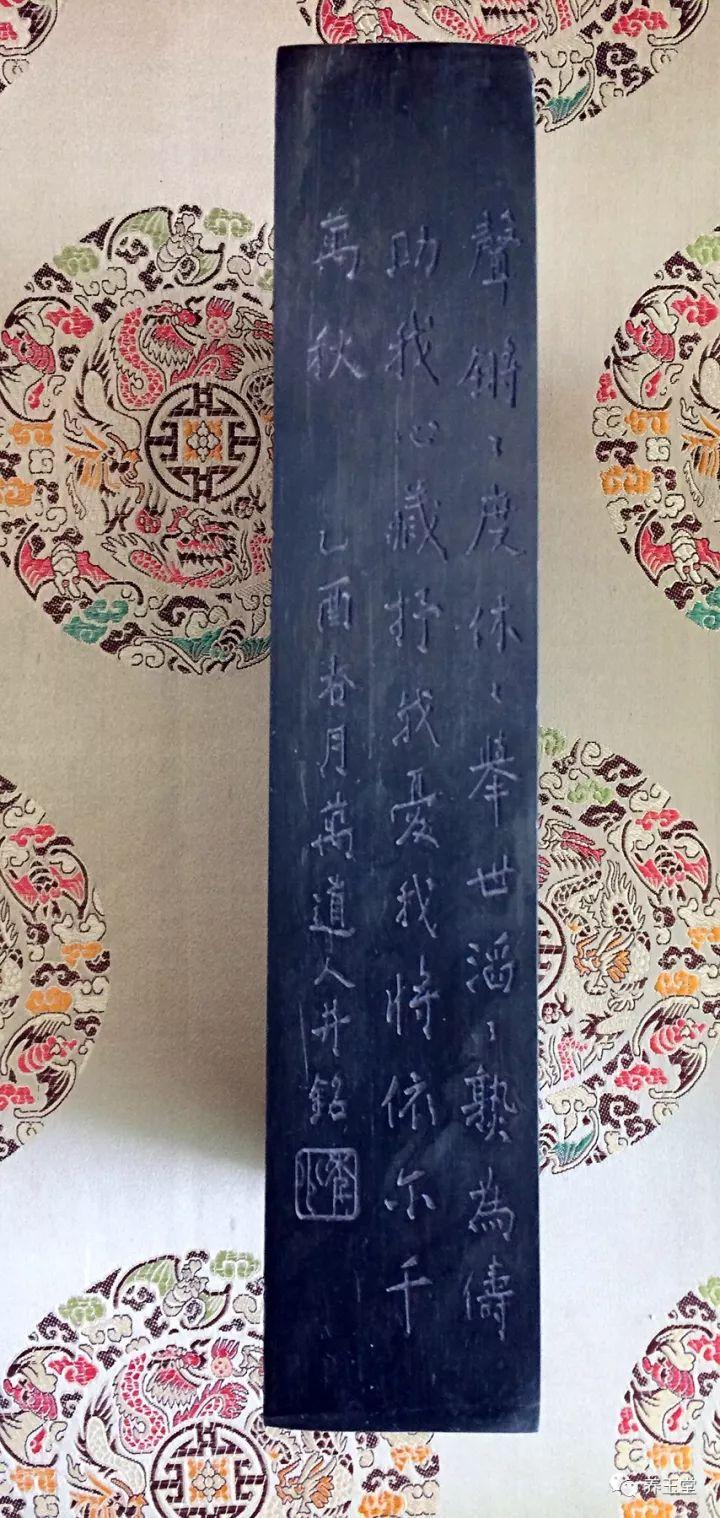 聲鏘〻度休〻舉世滔〻孰為儔
助我心藏抒我憂我將依尒千
萬秋
乙酉春月萬道人井銘
养玉堂